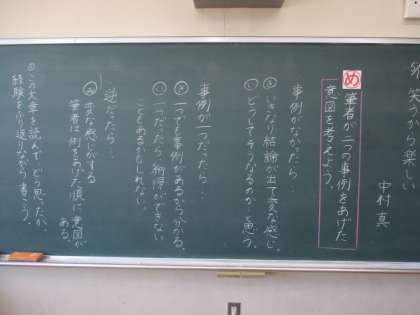 笑うから楽しい
中村 真
め 筆者が二つの事例をあげた
意図を考えよう。
事例がなかったら…
いきなり結論が出て変な感じ。
どうしてそうなるのか と思う。
事例が一つだったら…
一つでも事例があるから分かる。
一つだったら納得ができない
こともあるかもしれない。
逆だったら…
変な感じがする
筆者は例をあげた順に意図が
ある。
この文章を読んで、どう思ったか、
経験をふり返りながら書こう。